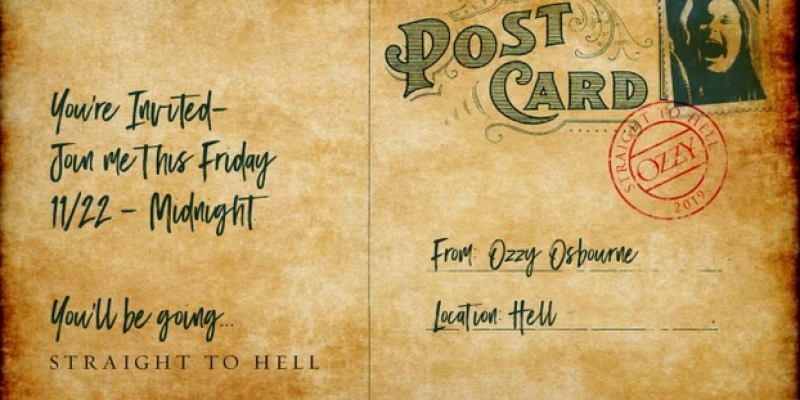 You're Invited-
Join me This Friday
11/22 - Midnight
You'll be going...
STRAIGHT TO HELL
POST
CARD
STRAIGHT TO HELL
OZZY
2019
From: Ozzy Osbourne
Location: Hell